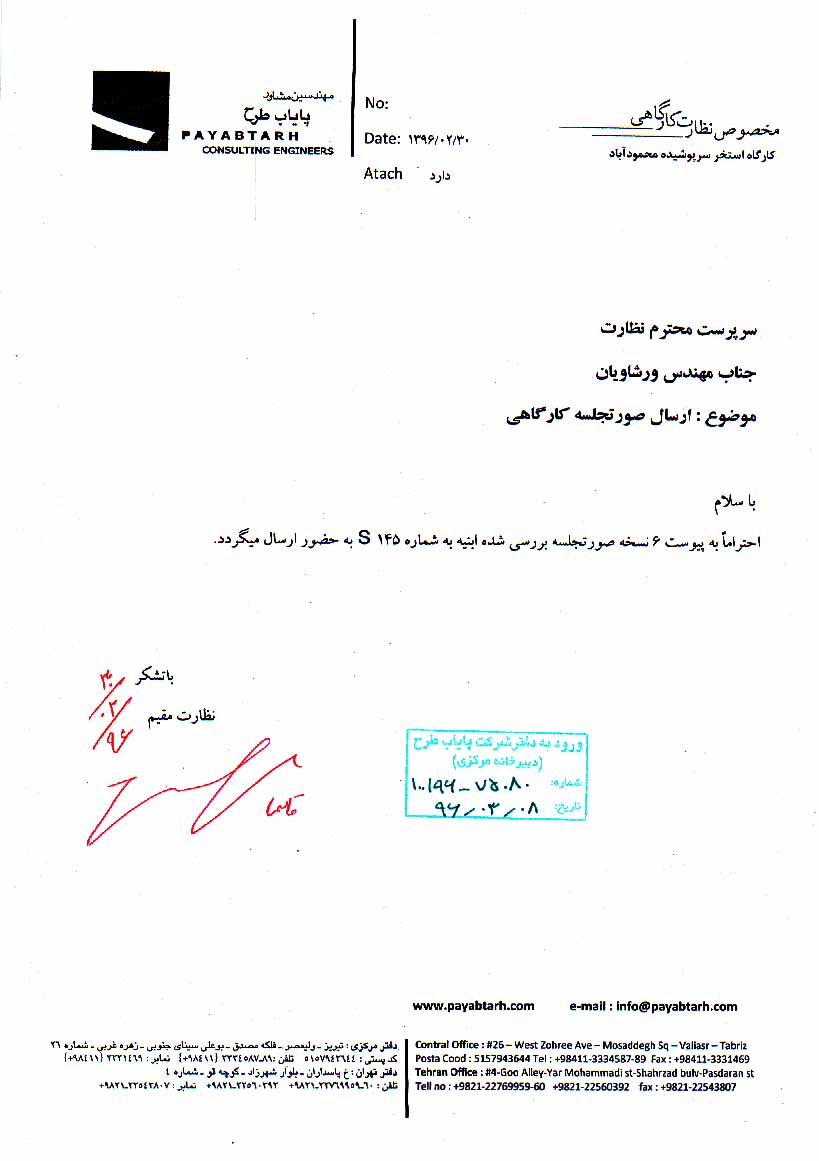 مهندسین مشاور
پایاب طرح
PAYABTARH
CONSULTING ENGINEERS
No:
Date: ۱۳۹۶/۰۲/۳۰
Atach دارد
مخصوص نظارت کارگاهی
کارگاه استخر سرپوشیده محمودآباد
سرپرست محترم نظارت
جناب مهندس ورشاویان
موضوع : ارسال صورتجلسه کارگاهی
با سلام
احتراماً به پیوست ۶ نسخه صورتجلسه بررسی شده ابنیه به شماره S ۱۴۵ به حضور ارسال میگردد.
باتشکر
نظارت مقیم
۳۰/
۰۲/
۹۶
ورود به دفتر شرکت پایاب طرح
(دبیرخانه مرکزی)
شماره: ۱۰۰۱۹۶-۷۵۰۸۰
تاریخ: ۹۶/۰۳/۰۸
www.payabtarh.com e-mail : info@payabtarh.com
دفتر مرکزی : تبریز ـ ولیعصر ـ فلکه مصدق ـ بوعلی سینای جنوبی ـ زهره غربی ـ شماره ۲۶
کد پستی : ۵۱۵۷۹٤۳٦٤٤ تلفن :۸۹ـ۳۳۳٤٥۸۷ (۹۸٤۱۱+) نمابر : ۳۳۳۱٤٦۹ (۹۸٤۱۱+)
دفتر تهران : خ پاسداران ـ بلوار شهرزاد ـ کوچه گو ـ شماره ٤
تلفن : ٦۰ـ۹۸۲۱ـ۲۲۷٦۹۹٥۹+ ۹۸۲۱ـ۲۲٥٦۰۳۹۲+ نمابر : ۹۸۲۱ـ۲۲٥٤۳۸۰۷+
Contral Office : #26 – West Zohree Ave – Mosaddegh Sq – Valiasr – Tabriz
Posta Cood : 5157943644 Tel : +98411-3334587-89 Fax : +98411-3331469
Tehran Office : #4-Goo Alley-Yar Mohammadi st-Shahrzad bulv-Pasdaran st
Tell no : +9821-22769959-60 +9821-22560392 fax : +9821-22543807